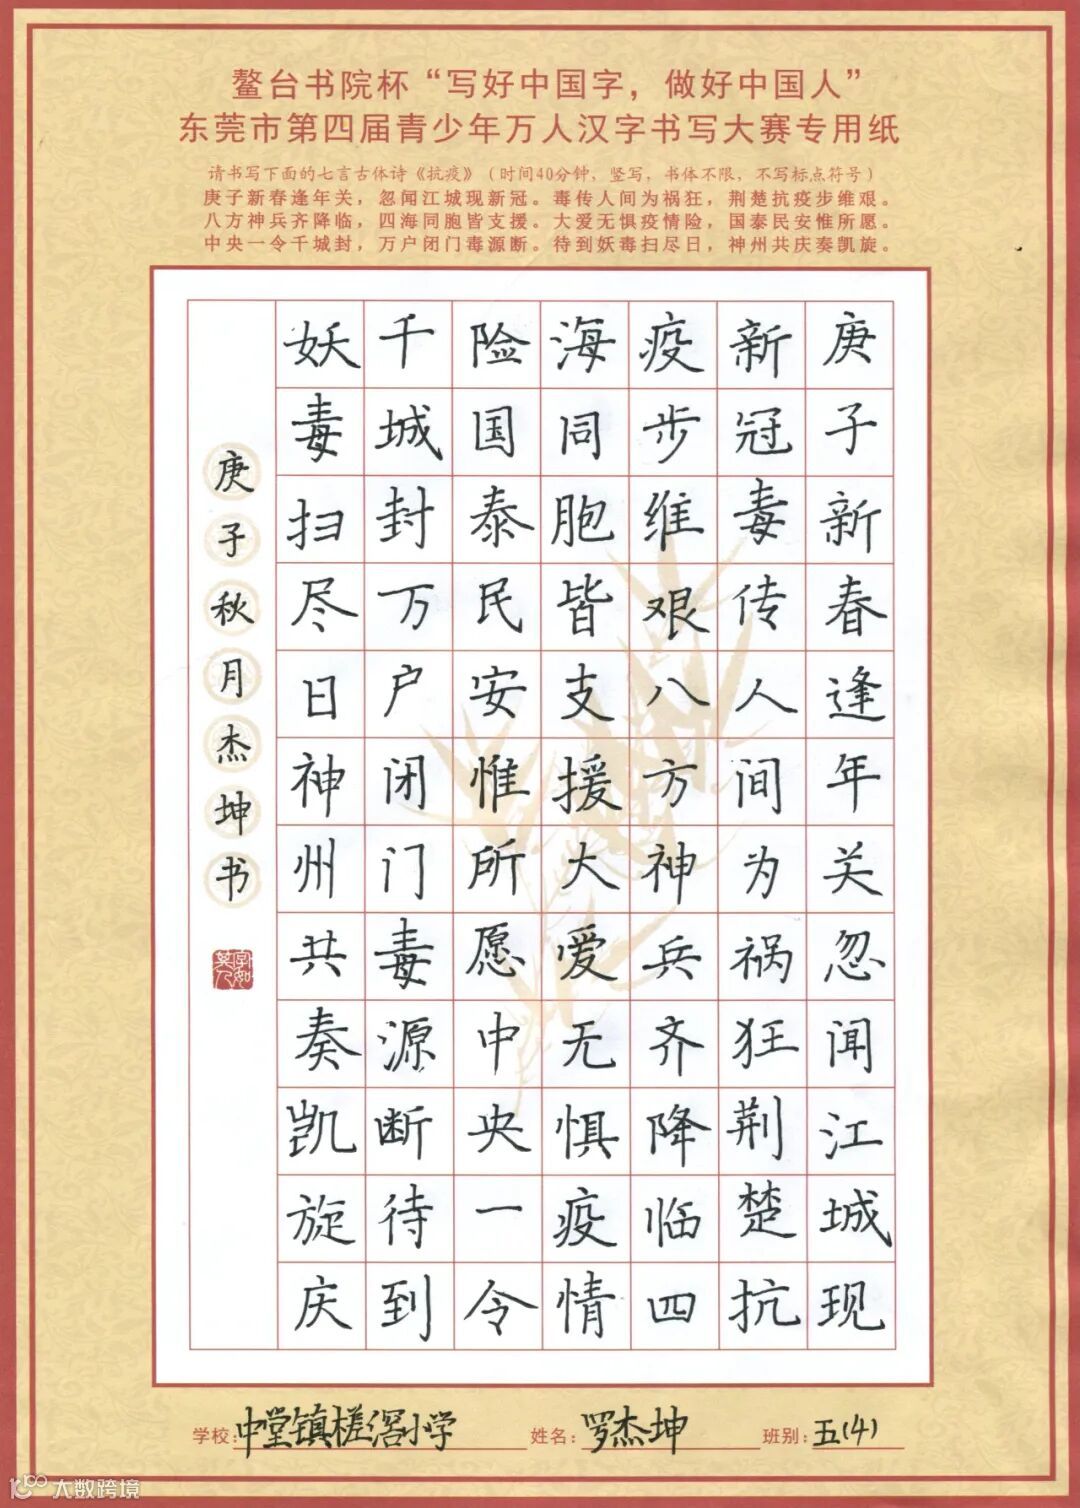 鳌台书院杯“写好中国字，做好中国人”
东莞市第四届青少年万人汉字书写大赛专用纸
请书写下面的七言古体诗《抗疫》（时间40分钟，竖写，书体不限，不写标点符号）
庚子新春逢年关，忽闻江城现新冠。毒传人间为祸狂，荆楚抗疫步维艰。
八方神兵齐降临，四海同胞皆支援。大爱无惧疫情险，国泰民安惟所愿。
中央一令千城封，万户闭门毒源断。待到妖毒扫尽日，神州共庆奏凯旋。
庚子新春逢年关忽闻江城现
新冠毒传人间为祸狂荆楚抗
疫步维艰八方神兵齐降临四
海同胞皆支援大爱无惧疫情
险国泰民安惟所愿中央一令
千城封万户闭门毒源断待到
妖毒扫尽日神州共奏凯旋庆
庚子秋月杰坤书
学校:中堂镇槎滘小学 姓名:罗杰坤 班别:五(4)
大数跨境